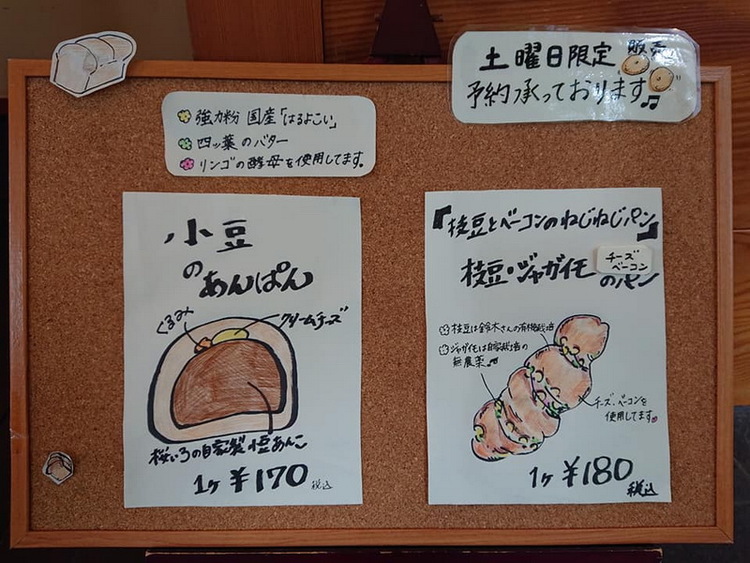 土曜日限定 販売
予約承っております♫
強力粉 国産「はるよこい」
四ッ葉のバター
リンゴの酵母を使用してます。
小豆
の あんぱん
くるみ
クリームチーズ
桜いろの自家製 小豆あんこ
1ヶ ¥170 税込
『枝豆とベーコンのねじねじパン』
枝豆・ジャガイモ チーズ ベーコン のパン
枝豆は鈴木さんの有機栽培
ジャガイモは自家栽培の
無農薬♫
チーズ・ベーコンを
使用してます。
1ヶ ¥180 税込